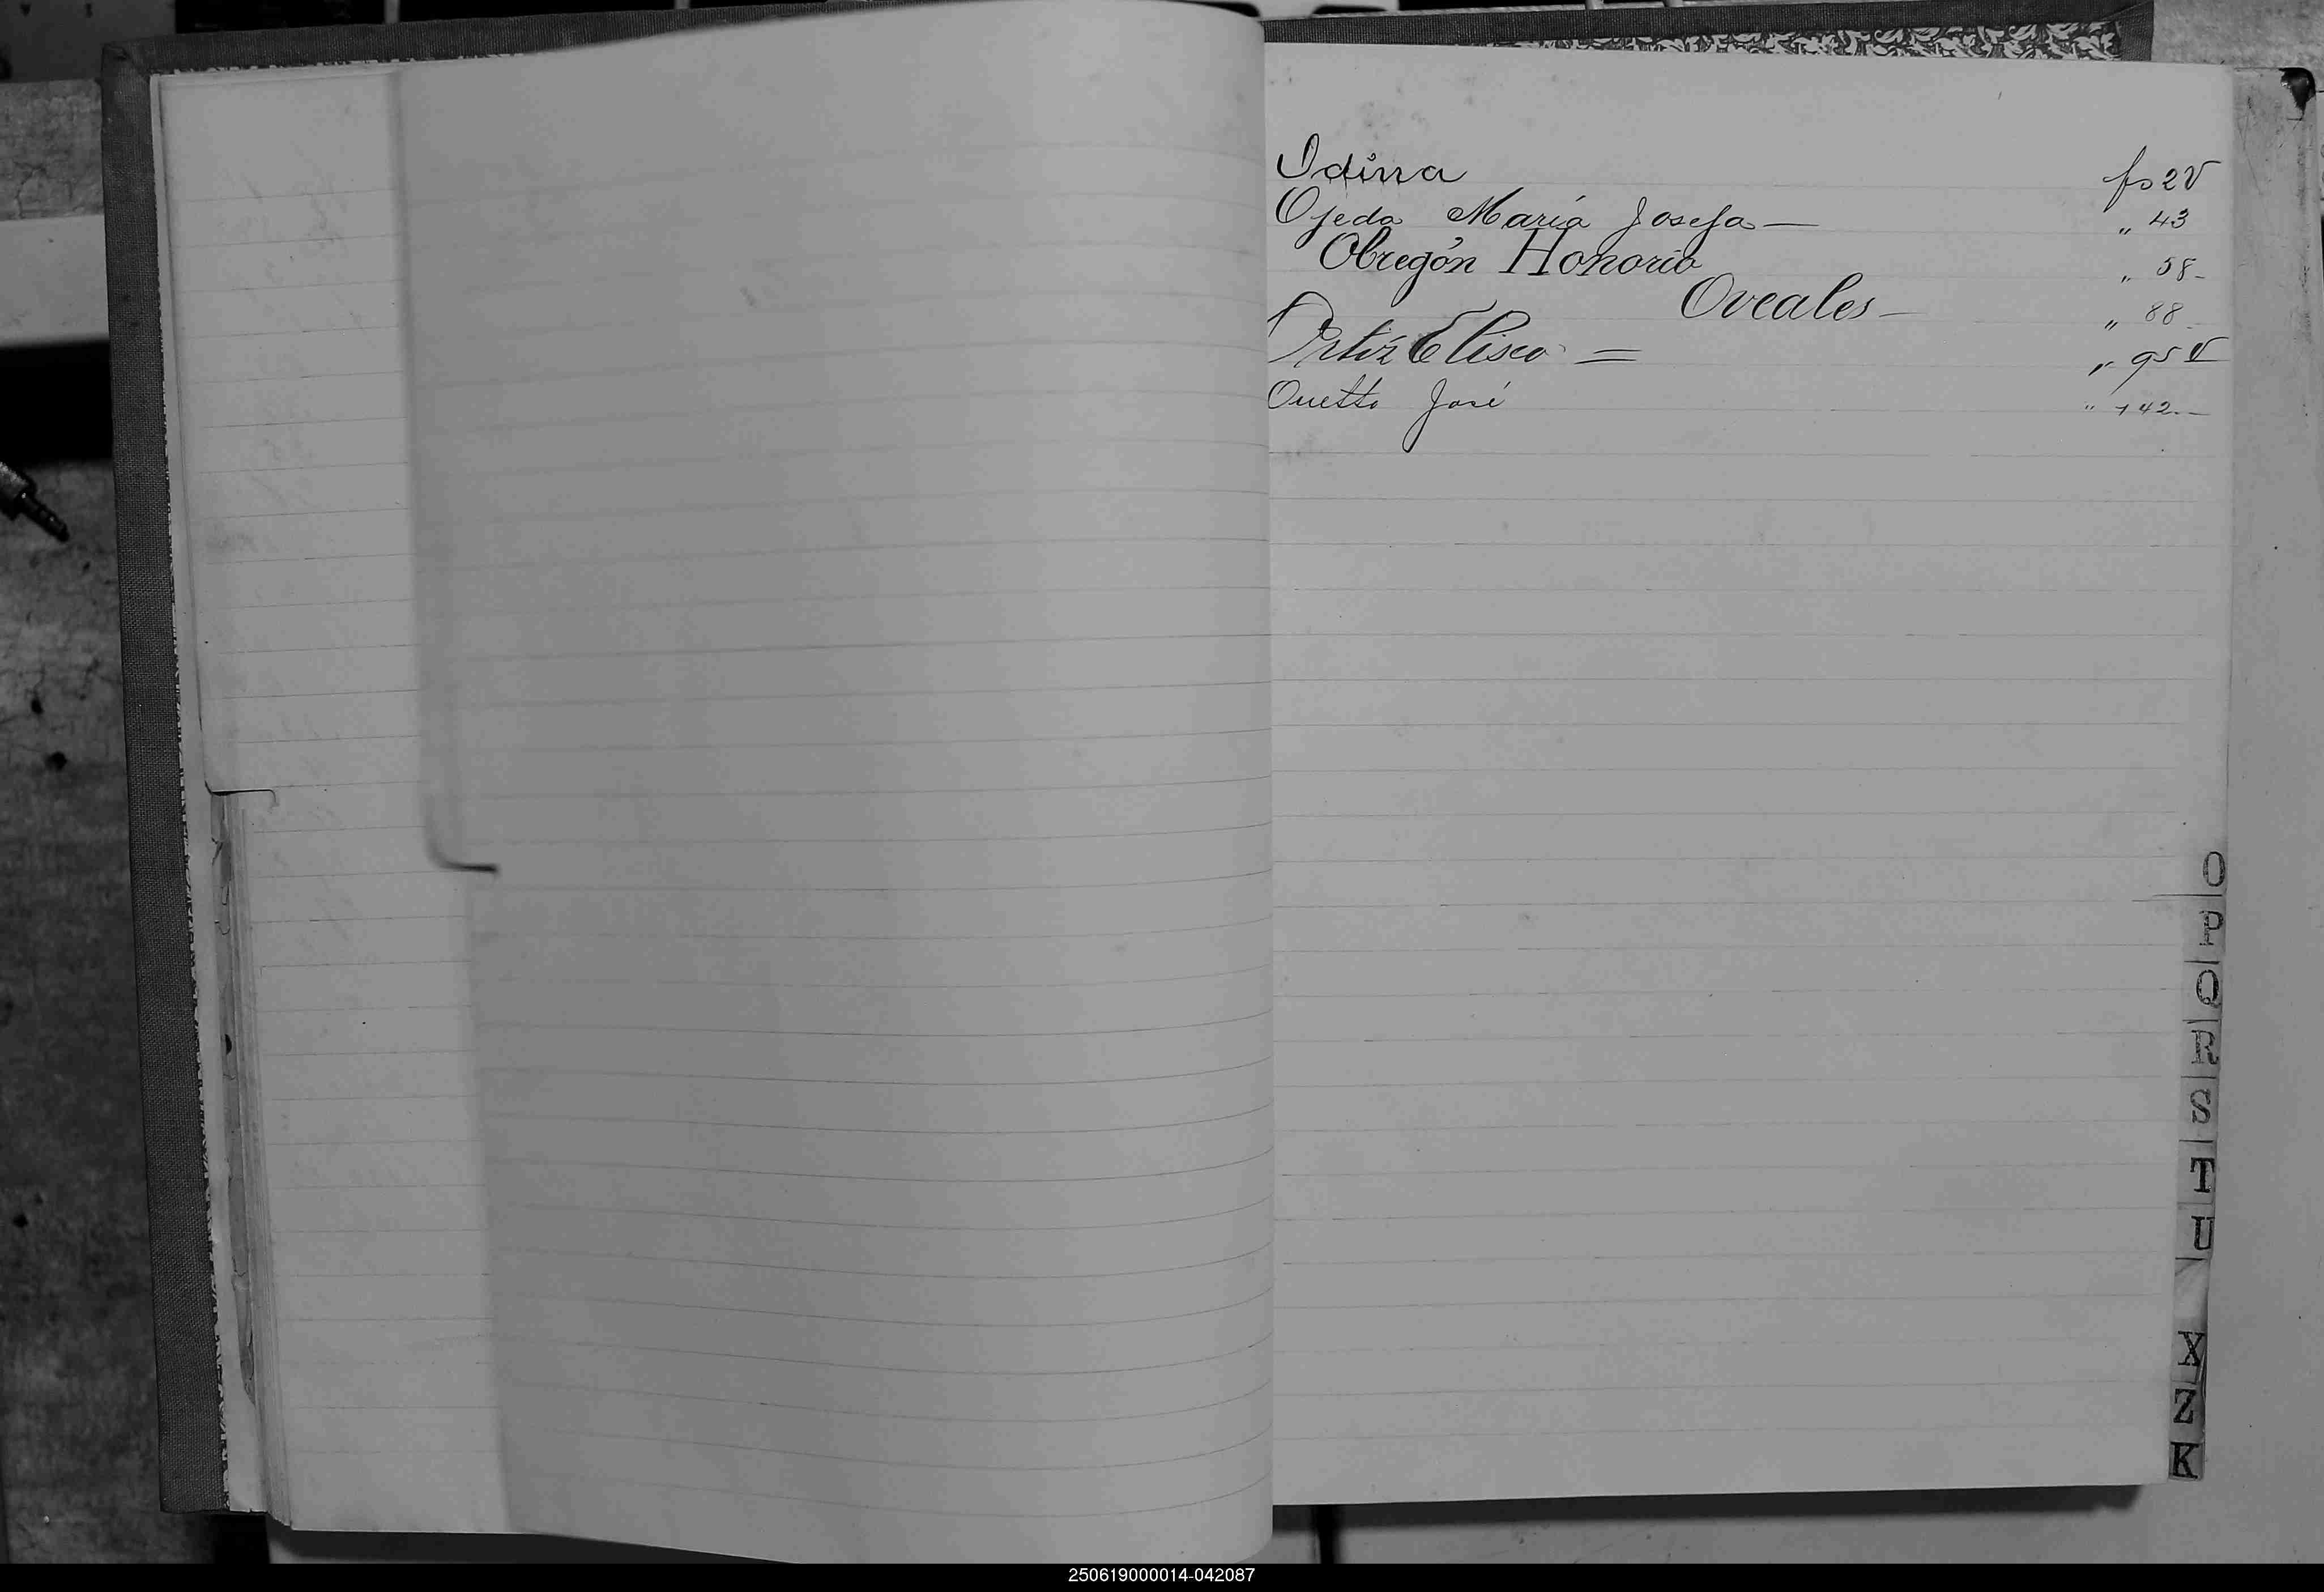 Odina fs 2 V
Ojeda María Josefa — " 43
Obregón Honorio " 58 -
Oveales - " 88
Ortiz Eliseo = " 95 V
Ouetto José " 142 —
O
P
Q
R
S
T
U
X
Z
K
250619000014-042087